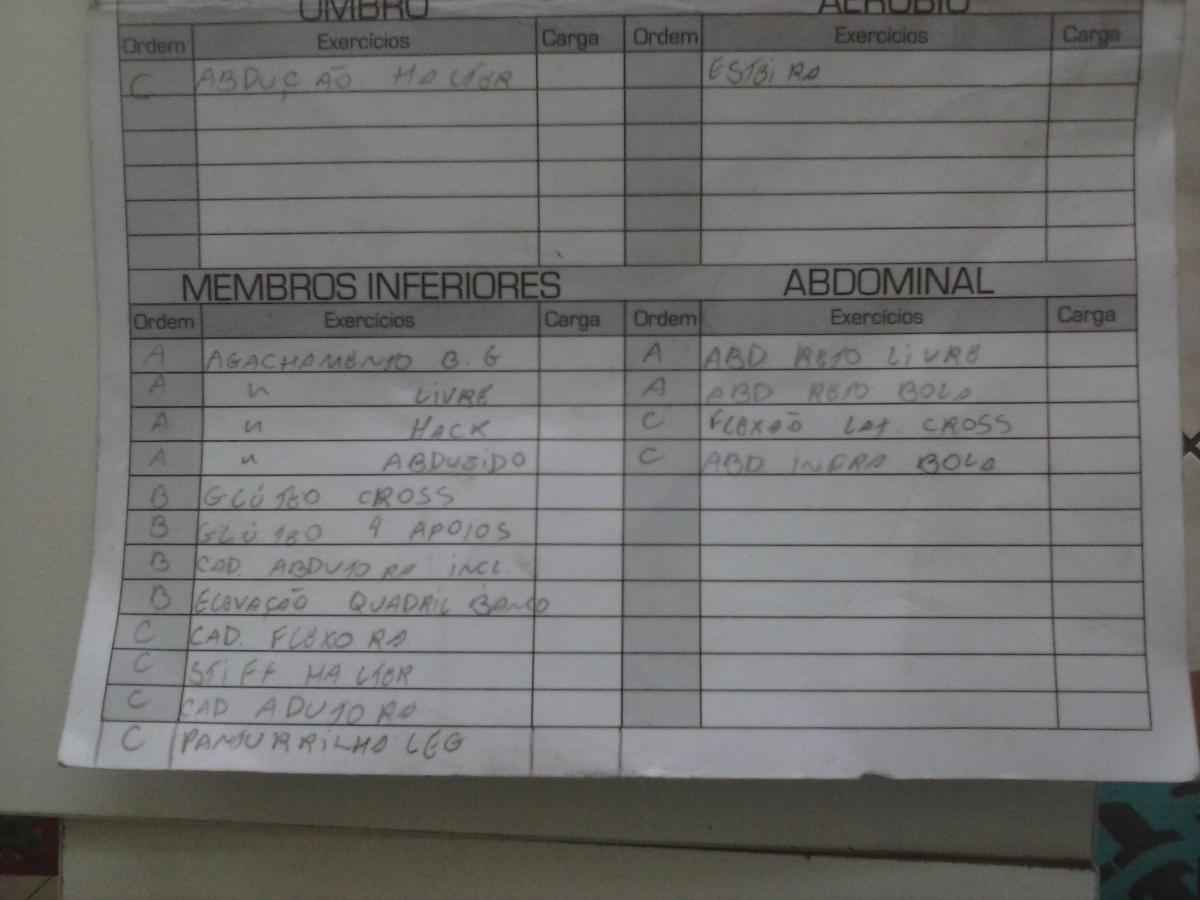 OMBRO AERÓBIO
Ordem Exercícios Carga Ordem Exercícios Carga
C ABDUÇÃO HALTER ESTEIRA
MEMBROS INFERIORES ABDOMINAL
Ordem Exercícios Carga Ordem Exercícios Carga
A AGACHAMENTO B.G A ABD RETO LIVRE
A " LIVRE A ABD RETO BOLA
A " HACK C FLEXÃO LAT CROSS
A " ABDUZIDO C ABD INFRA BOLA
B GLÚTEO CROSS
B GLÚTEO 4 APOIOS
B CAD. ABDUTORA INCL.
B ELEVAÇÃO QUADRIL BANCO
C CAD. FLEXORA
C STIFF HALTER
C CAD ADUTORA
C PANTURRILHA LEG